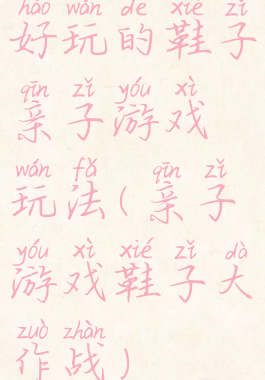 hǎo wán de xié zi
好玩的鞋子
qīn zǐ yóu xì
亲子游戏
wán fǎ qīn zǐ
玩法(亲子
yóu xì xié zi dà
游戏鞋子大
zuò zhàn
作战)